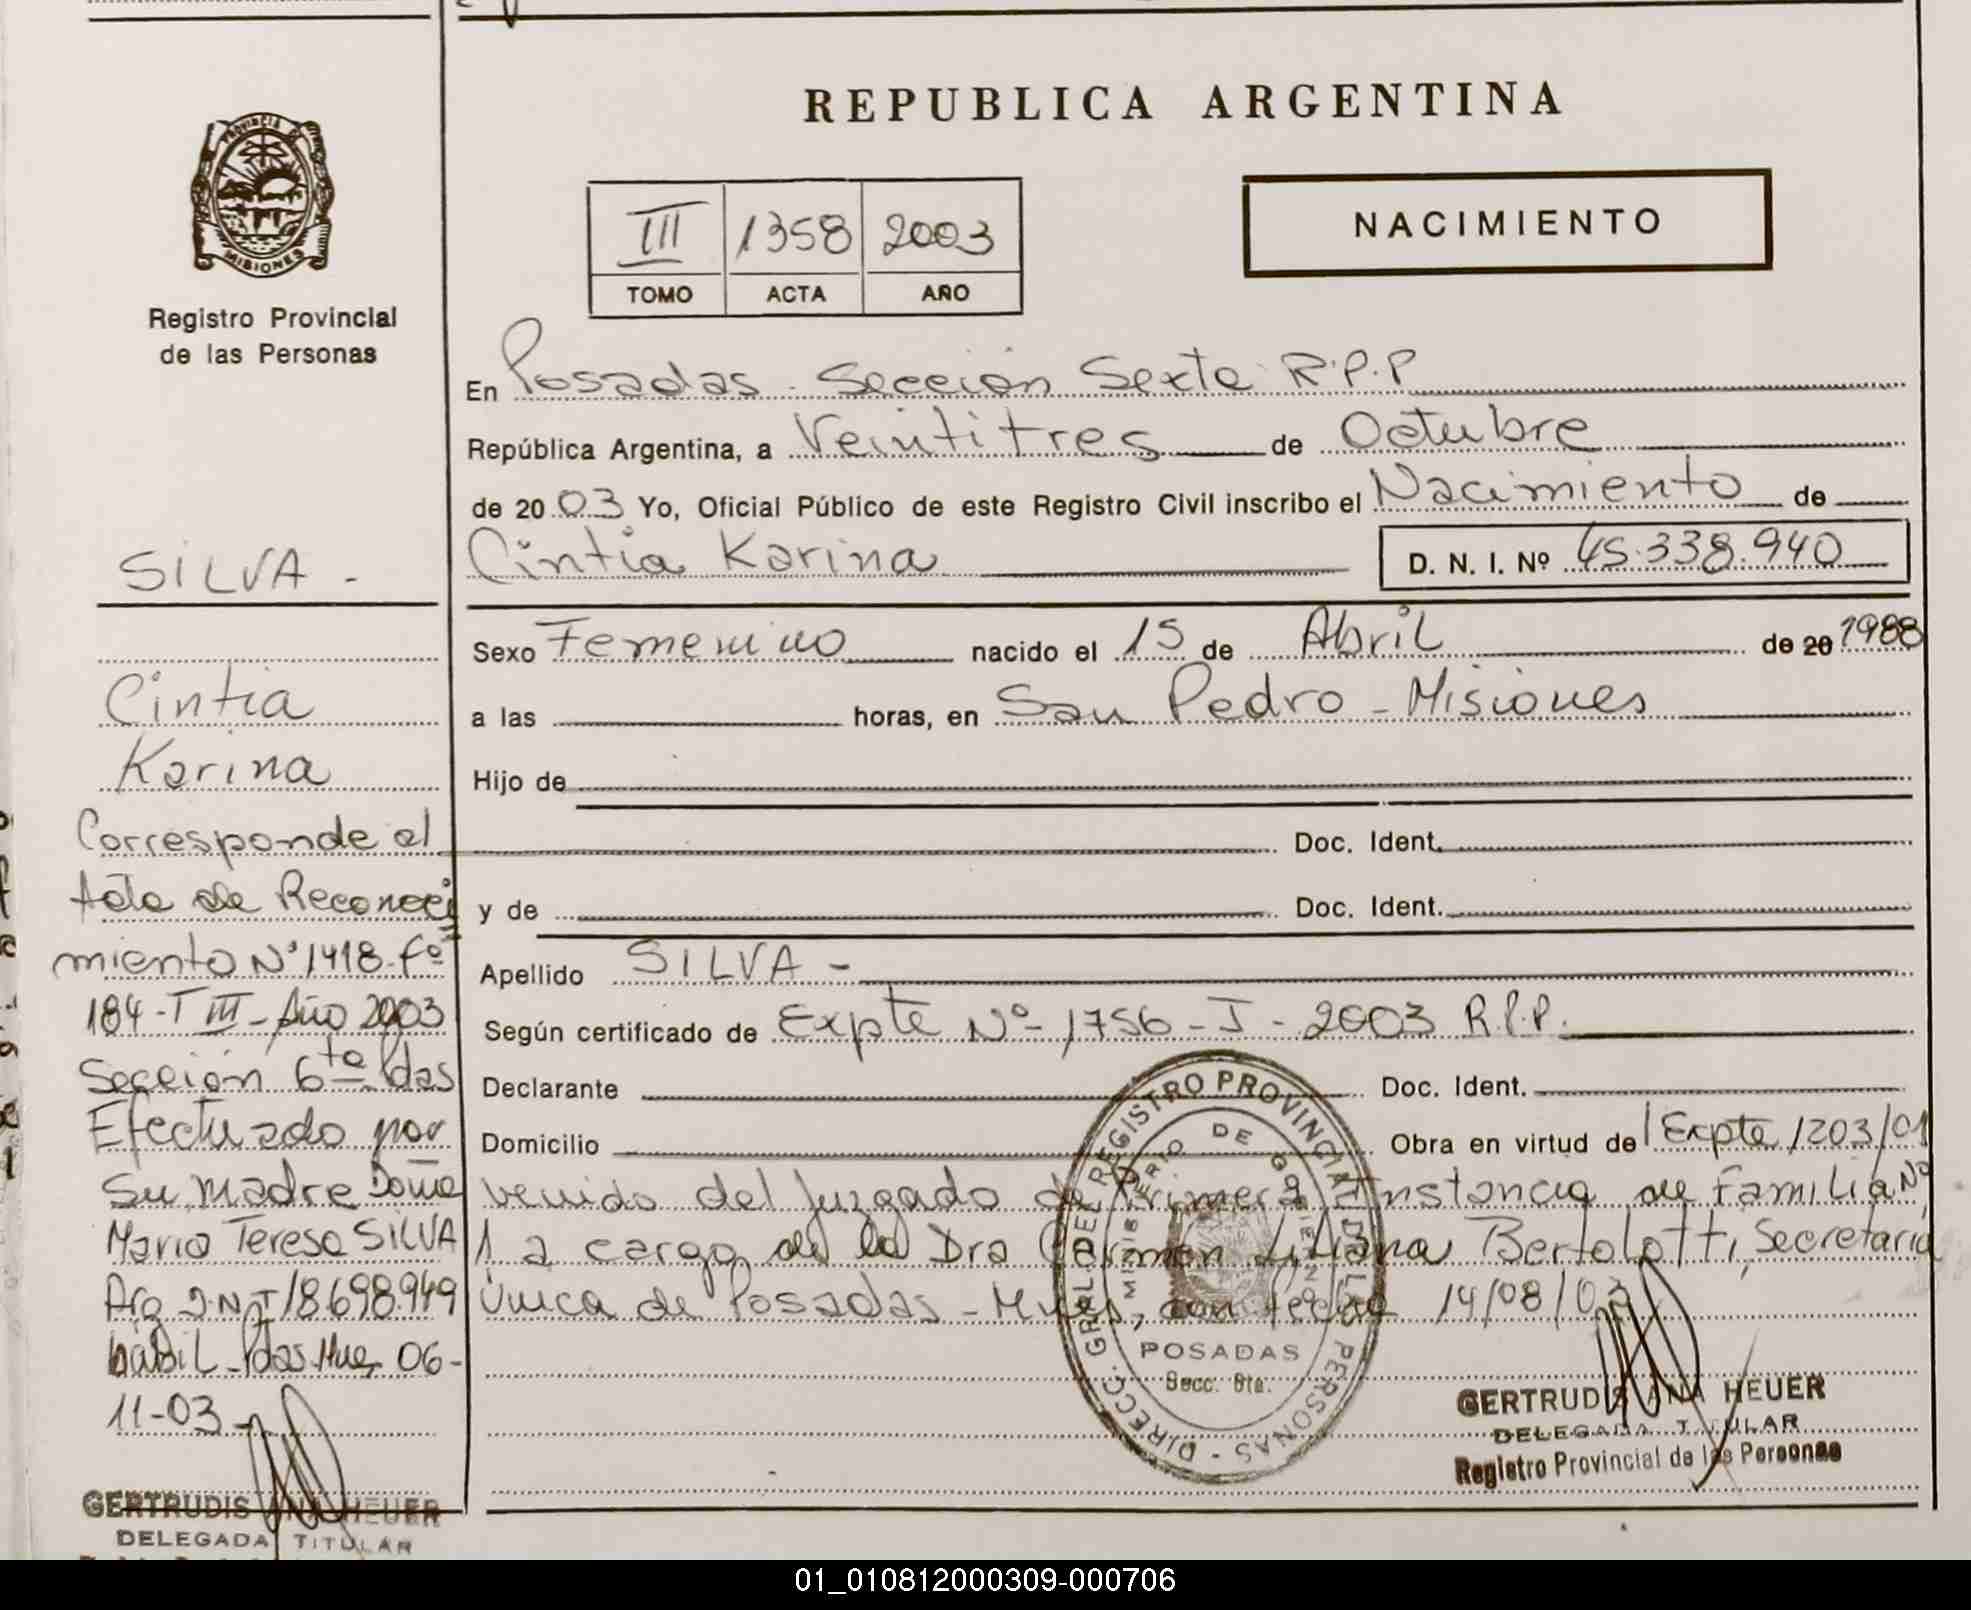 REPUBLICA ARGENTINA
PROVINCIA DE
MISIONES
Registro Provincial
de las Personas
III 1358 2003
TOMO ACTA AÑO
NACIMIENTO
En Posadas - Sección Sexta R.P.P
República Argentina, a Veintitres de Octubre
de 2003 Yo, Oficial Público de este Registro Civil inscribo el Nacimiento de
Cintia Karina
D. N. I. Nº 45.338.940
Sexo Femenino nacido el 15 de Abril de 20 1988
a las horas, en San Pedro - Misiones
Hijo de
Doc. Ident.
y de Doc. Ident.
Apellido SILVA -
Según certificado de Expte Nº 1756 - J - 2003 R.P.P.
Declarante Doc. Ident.
Domicilio Obra en virtud de Expte 1203/01
venido del Juzgado de Primera Instancia de Familia Nº
1 a cargo de la Dra Carmen Liliana Bertolotti, Secretaria
Única de Posadas - Mnes, con fecha 14/08/03
SILVA -
Cintia
Karina
Corresponde al
Acta de Reconoci
miento Nº 1418-Fº
184-T III-Año 2003
Sección 6ta Pdas
Efectuado por
Su madre Doña
Maria Teresa SILVA
Arg D.N.I 18.698.949
hábil - Pdas. Mnes 06-
11-03 -
GERTRUDIS ANA HEUER
DELEGADA TITULAR
DIRECC. GRAL DEL REGISTRO PROVINCIAL DE LAS PERSONAS
MINISTERIO DE GOBIERNO
POSADAS
Secc. 6ta.
GERTRUDIS ANA HEUER
DELEGADA TITULAR
Registro Provincial de las Personas
01_010812000309-000706